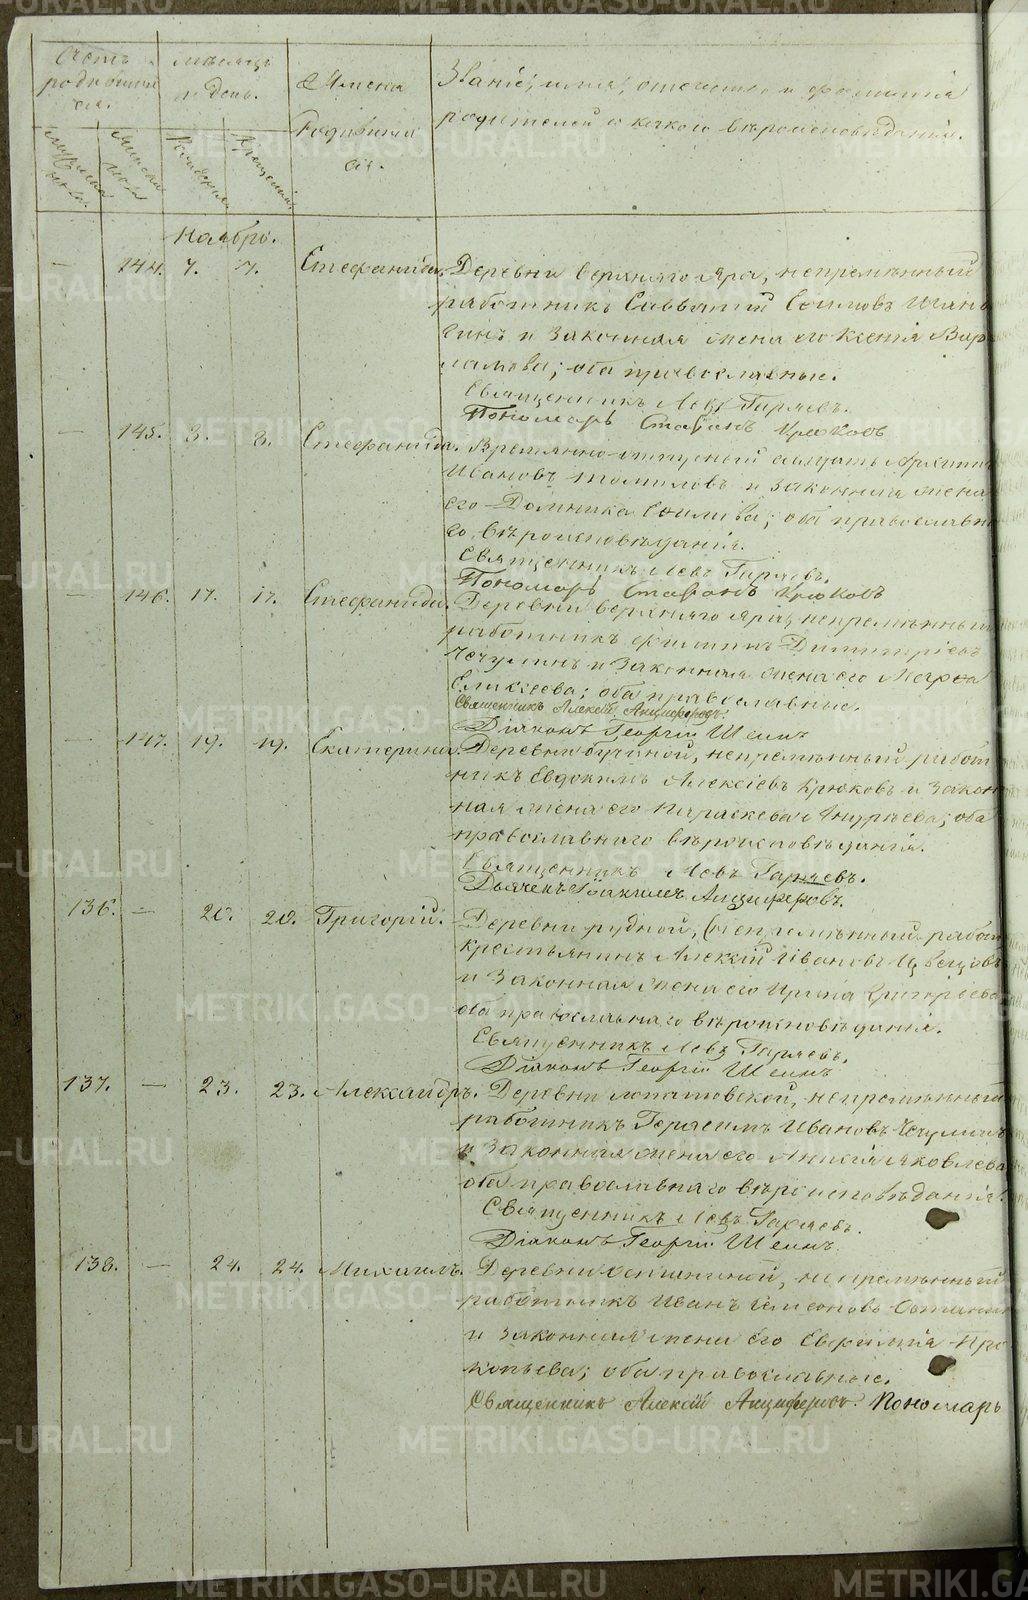 Счетъ родившихся.
Мѣсяцъ и день.
Имена Родившихся.
Званіе, имя, отчество и фамилія
родителей и какого вѣроисповѣданія.
Мужеска пола.
Женска пола
Рожденія
Крещенія.
Ноябрь.
— 144. 7. 7. Стефанида. Деревни Верхняго Яра, непремѣнный
работникъ Савватій
и законная жена его Ксенія Вар
ламова; оба православные.
Священникъ Левъ Гаряевъ.
Пономарь Стефанъ Крюковъ
— 145. 8. 8. Стефанида. Временно-отпускный солдатъ Архипъ
Ивановъ Томиловъ и законная жена
его Домника; оба православна
го вѣроисповѣданія.
Священникъ Левъ Гаряевъ.
Пономарь Стефанъ Крюковъ
— 146. 17. 17. Стефанида. Деревни Верхняго Яра, непремѣнный
работникъ Филиппъ Димитріевъ
Чечулинъ и законная жена его Марѳа
Елисѣева; оба православные.
Священникъ Алексій Анциферовъ.
Діаконъ Георгій Шеинъ
— 147. 19. 19. Екатерина. Деревни, непремѣнный работ
никъ Евдокимъ Алексіевъ Крюковъ и закон
ная жена его Параскева Андреева; оба
православнаго вѣроисповѣданія.
Священникъ Левъ Гаряевъ.
Дьячекъ Іоакимъ Анциферовъ.
136. — 20. 20. Григорій. Деревни Рудной, непремѣнный работ
крестьянинъ Алексій Ивановъ
и законная жена его Ирина Григорьева
оба православнаго вѣроисповѣданія.
Священникъ Левъ Гаряевъ.
Діаконъ Георгій Шеинъ
137. — 23. 23. Александръ. Деревни Лопатовской, непремѣнный
работникъ Герасимъ Ивановъ Чечулинъ
и законная жена его Анисія Яковлева
оба православнаго вѣроисповѣданія.
Священникъ Левъ Гаряевъ.
Діаконъ Георгій Шеинъ.
138. — 24. 24. Михаилъ. Деревни, непремѣнный
работникъ Иванъ Симеоновъ
и законная жена его Евфимія Про
копьева; оба православные.
Священникъ Алексій Анциферовъ. Пономарь
METRIKI.GASO-URAL.RU